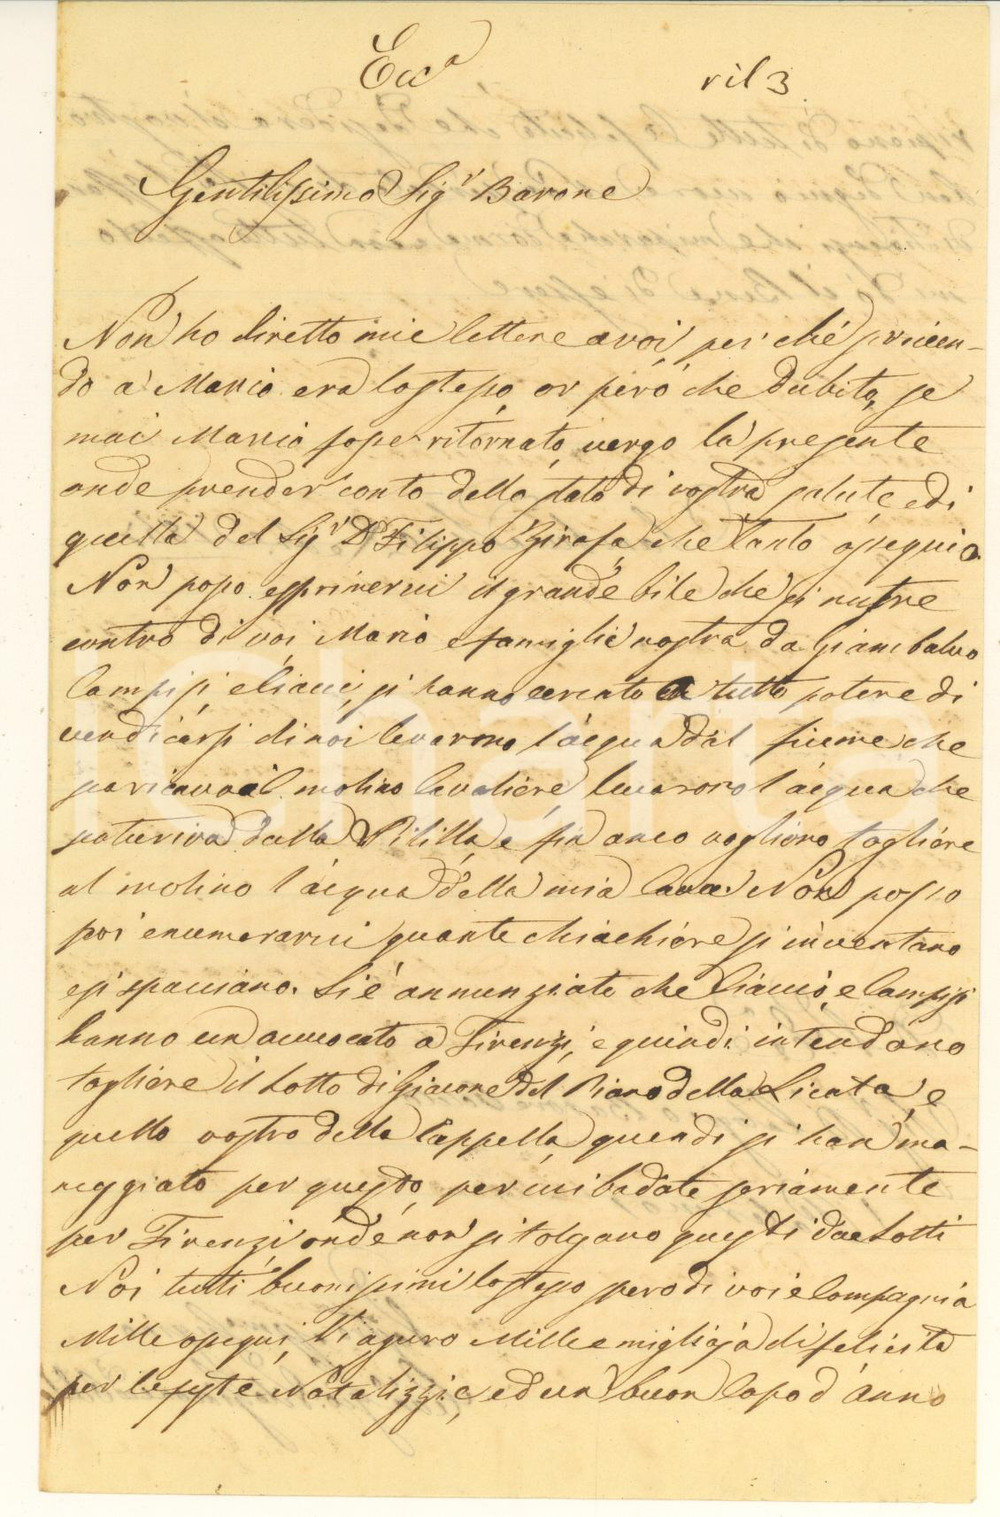 Ecc.a
ril 3
Gentilissimo Sig.r Barone
Non ho diretto mie lettere a voi, per ché scriven-
do a Mario era lo stesso, or però che dubito, se
mai Mario fosse ritornato, vergo la presente
onde prender conto dello stato di vostra salute, e di
quella del Sig.r D. Filippo Girafa che tanto ossequio.
Non posso esprimervi il grande bile che si nutre
contro di voi, Mario e famiglia nostra da Giambalvo
Campisi, e Ciacci, si hanno cercato a tutto potere di
vendicarsi di noi levarono l'acqua dal fiume che
el molino Cavaliere, levarono l'acqua che
naturiva dalla Pililla, e fin anco vogliono togliere
al molino l'acqua della mia Cava. Non posso
poi enumerarvi quante chiachiere si inventano
e si spacciano. Si é annunziato che Ciacció, e Campisi
hanno un avvocato a Firenzi, e quindi intendono
togliere il Lotto di Giacone del Piano della Licata, e
quello vostro della Cappella, quindi si han ma-
neggiato per questo, per cui badate seriamente
per Firenzi onde non si tolgano questi due Lotti
Noi tutti buonissimi lo stesso spero di voi e Compagnia
Mille ossequi, Vi auguro Mille e migliaja di felicità
per le feste Natalizzie, ed un buon Capo d'anno
Charta